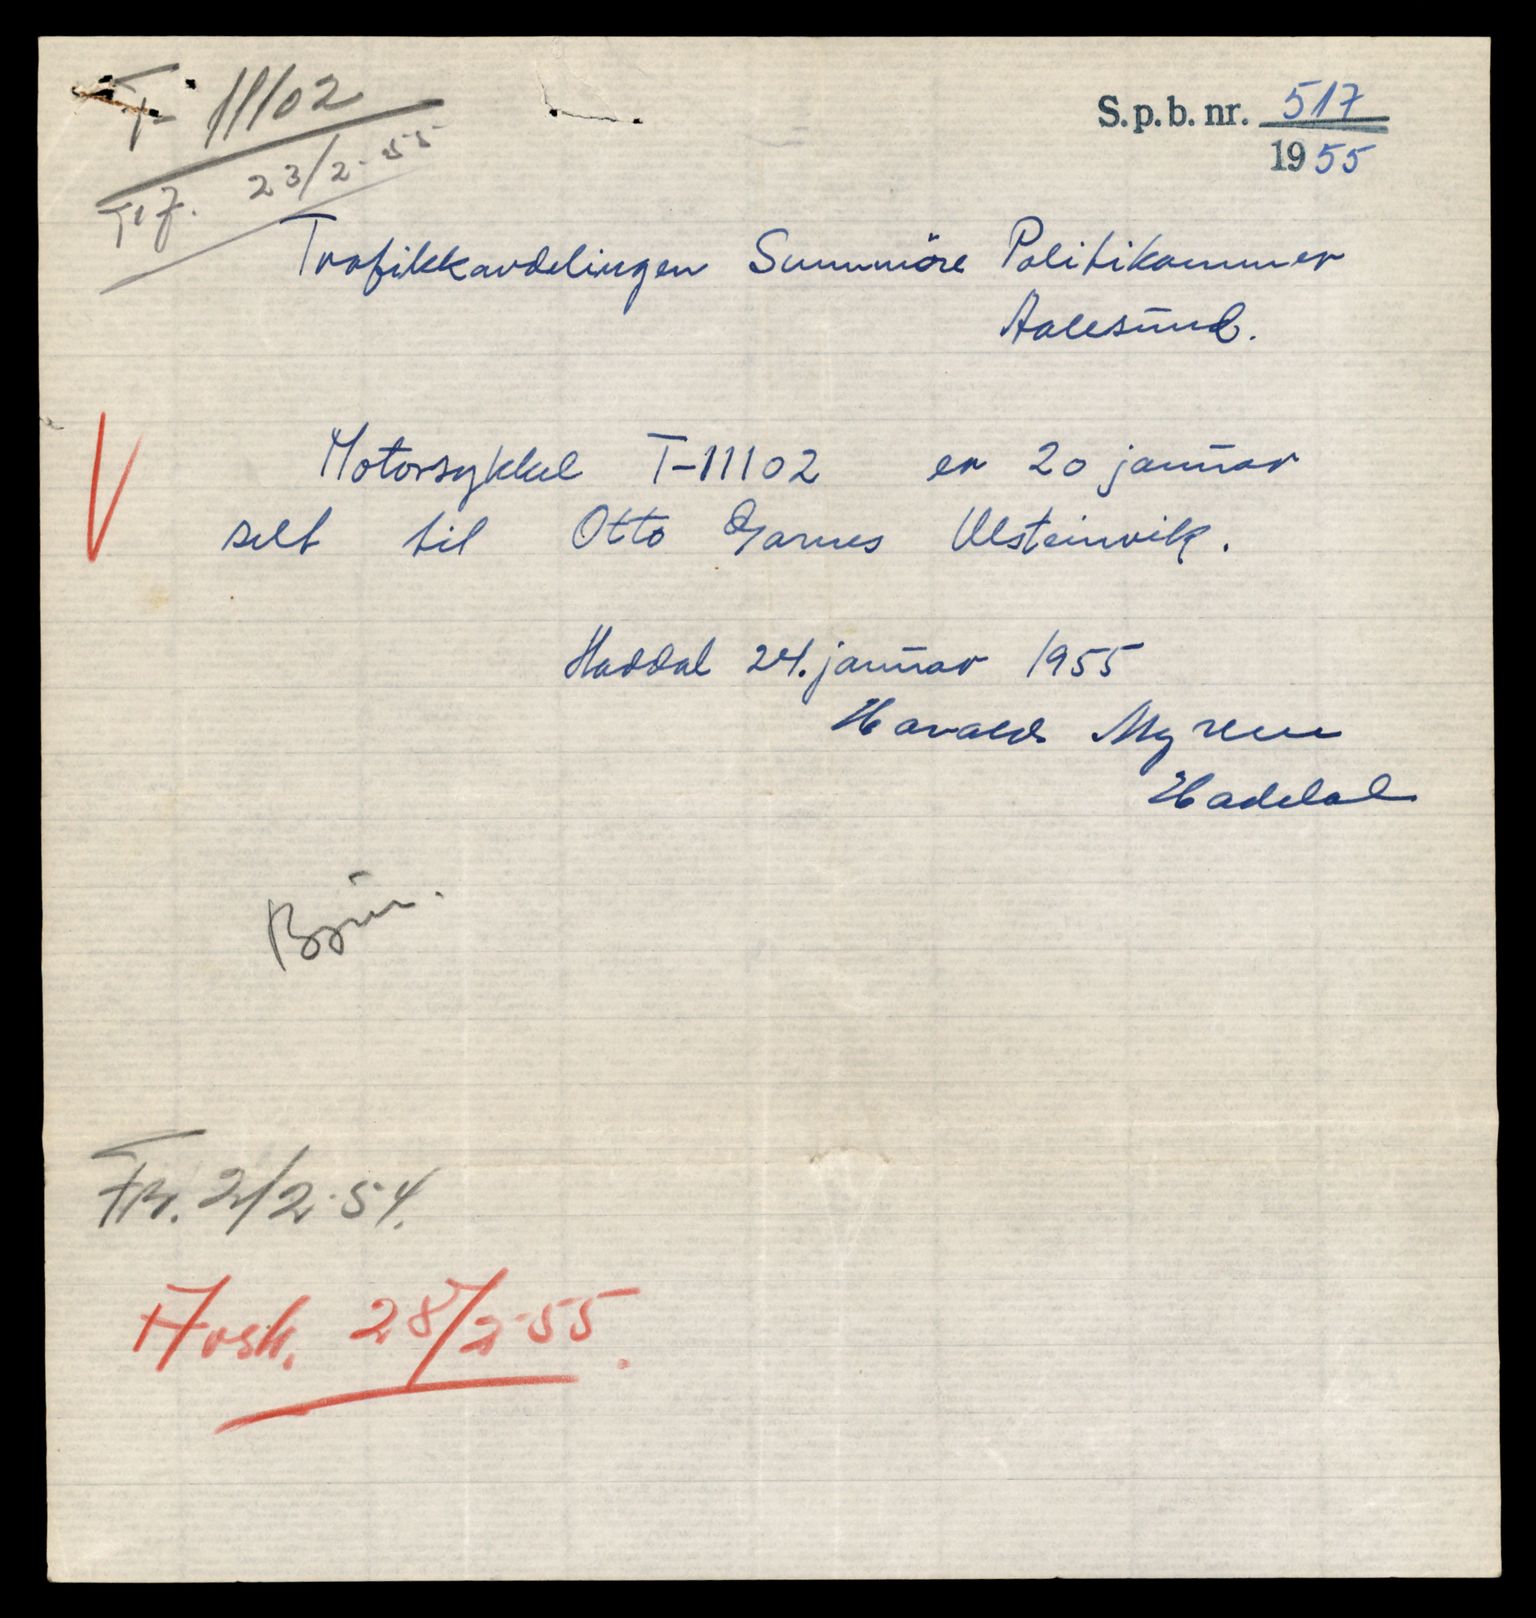 T- 11102
23/2-55
S.p.b. nr. 517
1955
Trafikkavdelingen Sunnmöre Politikammer
Aalesund.
Motorsykkel T-11102 er 20 januar
selt til Otto Garnes Ulsteinvik.
Haddal 24. januar 1955
Harald Myren
Haddal
2/2-54.
Avsk. 28/2-55.